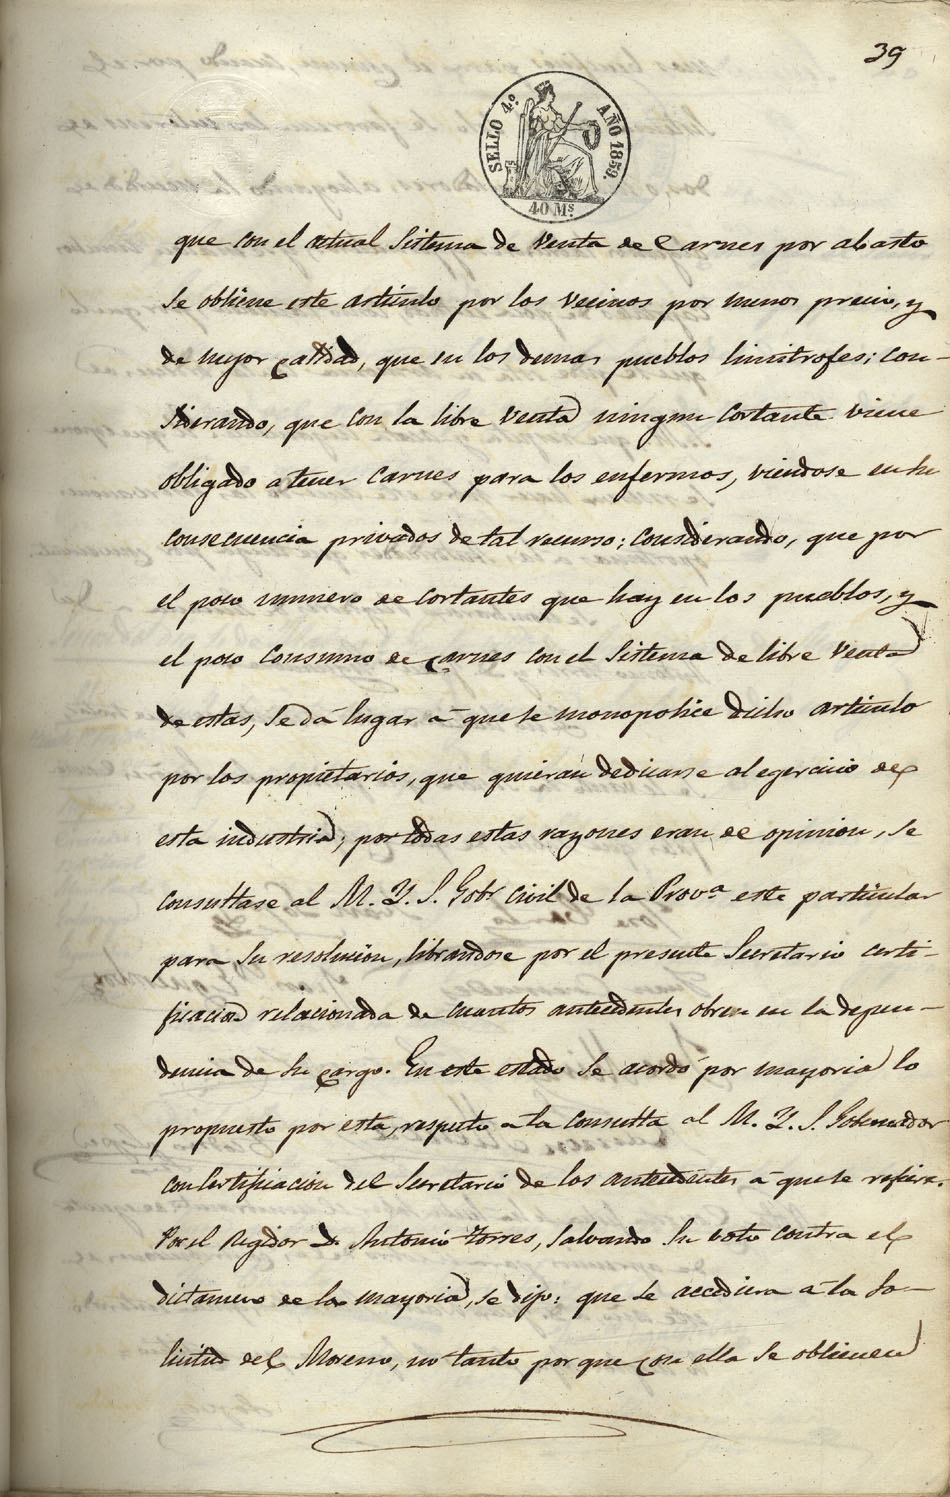 39
SELLO 4.º AÑO 1859.
40 Ms.
que con el actual Sistema de Venta de Carnes por abasto
se obtiene este articulo por los vecinos por menor precio, y
de mejor calidad, que en los demas pueblos limitrofes; con-
siderando, que con la libre Venta ningun Cortante viene
obligado a tener Carnes para los enfermos, viendose en su
consecuencia privados de tal recurso; considerando, que por
el poco numero de Cortantes que hay en los pueblos, y
el poco consumo de Carnes con el Sistema de libre Venta
de estas, se dá lugar á que se monopolice dicho articulo
por los propietarios, que quieran dedicarse al egercicio de
esta industria; por todas estas razones eran de opinion, se
consultase al M. Y. S. Gobr. Civil de la Prova. este particular
para su resolucion, librandose por el presente Secretario certi-
ficacion relacionada de cuantos antecedentes obren en la depen-
dencia de su cargo. En este estado se acordó por mayoria lo
propuesto por esta, respecto a la consulta al M. Y. S. Gobernador
con Certificacion del Secretario de los antecedentes á que se refiere.
Por el Regidor D. Antonio Torres, salvando su voto contra el
dictamen de la mayoria, se dijo: que se accediera á la so-
licitud del Moreno, no tanto por que con ella se obtienen